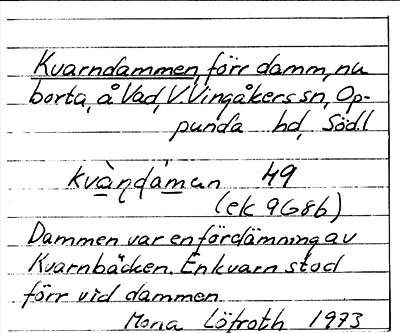 Kvarndammen, förr damm, nu
borta, å Vad, V. Vingåkers sn, Op-
punda hd, Södl
kvàṇdàman 49
(ek 9G8b)
Dammen var en fördämning av
Kvarnbäcken. En kvarn stod
förr vid dammen.
Mona Löfroth 1973